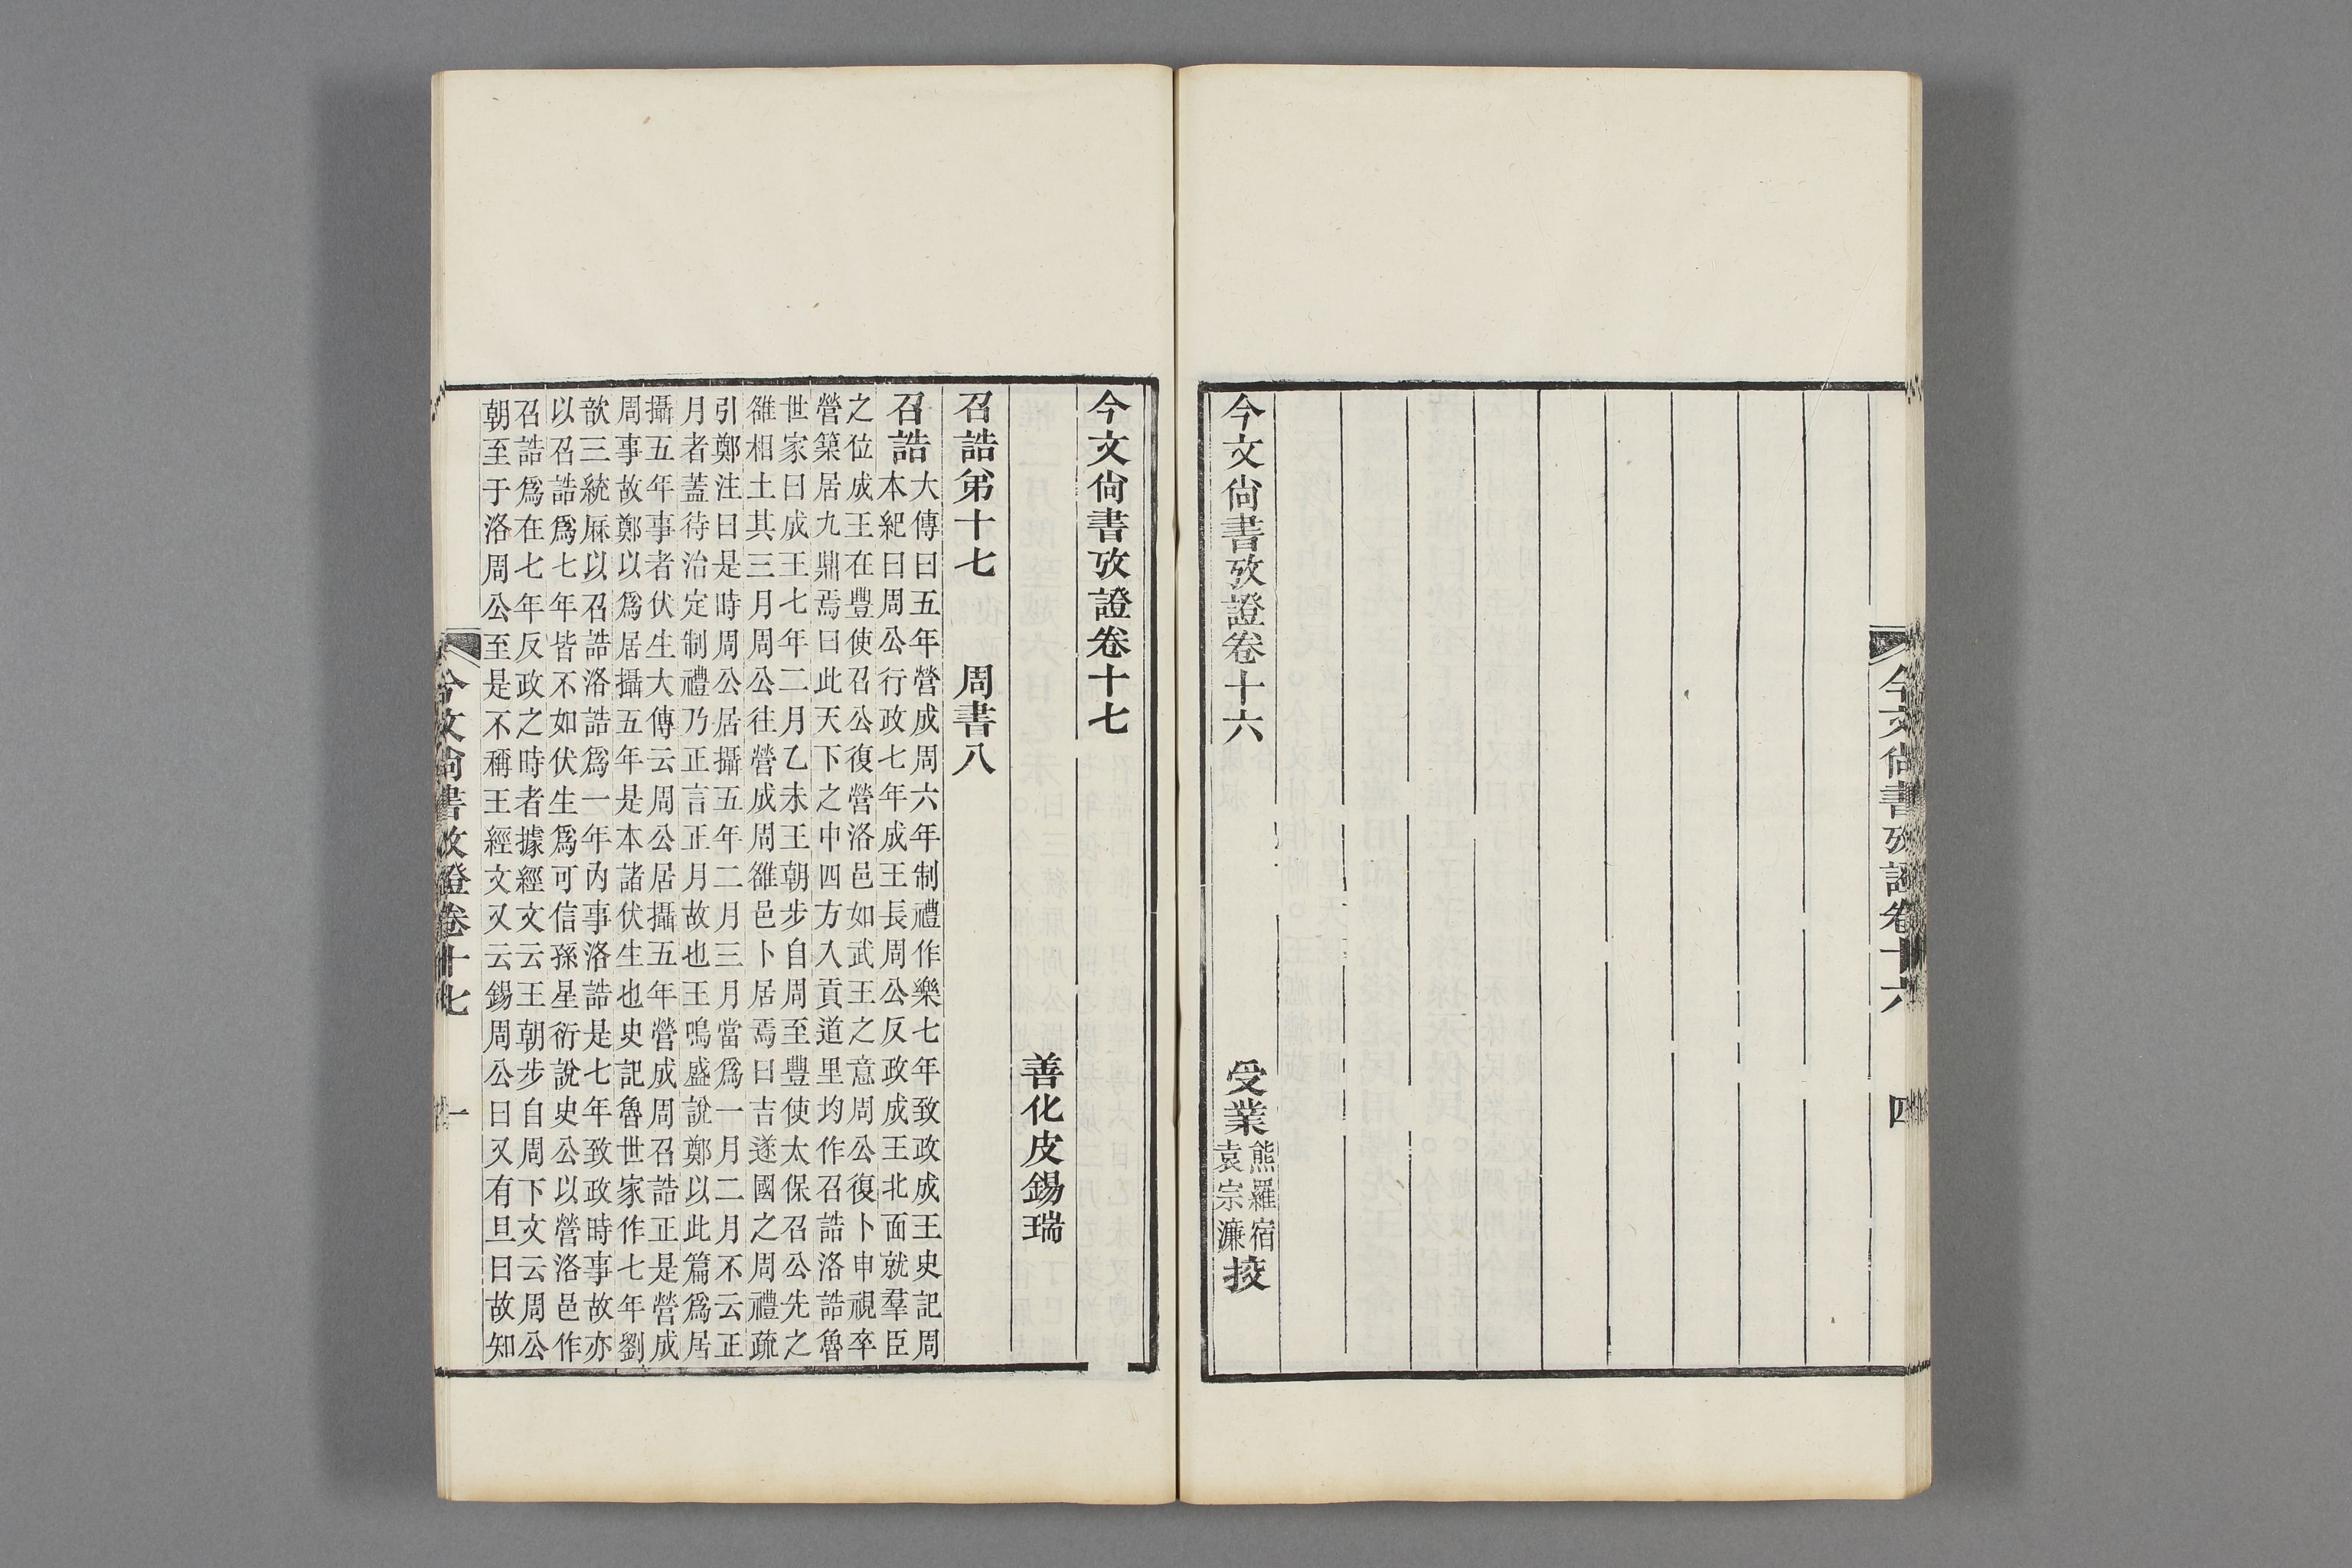 今文尙書攷證卷十六　四
今文尙書攷證卷十六　受業
熊羅宿
袁宗濂
挍
今文尙書攷證卷十七
善化皮錫瑞
召誥弟十七　周書八
召誥
大傳曰五年營成周六年制禮作樂七年致政成王史記周
本紀曰周公行政七年成王長周公反政成王北面就羣臣
之位成王在豐使召公復營洛邑如武王之意周公復卜申視卒
營築居九鼎焉曰此天下之中四方入貢道里均作召誥洛誥魯
世家曰成王七年二月乙未王朝步自周至豐使太保召公先之
雒相土其三月周公往營成周雒邑卜居焉曰吉遂國之周禮疏
引鄭注曰是時周公居攝五年二月三月當爲一月二月不云正
月者蓋待治定制禮乃正言正月故也王鳴盛說鄭以此篇爲居
攝五年事者伏生大傳云周公居攝五年營成周召誥正是營成
周事故鄭以爲居攝五年是本諸伏生也史記魯世家作七年劉
歆三統厤以召誥洛誥爲一年内事洛誥是七年致政時事故亦
以召誥爲七年皆不如伏生爲可信孫星衍說史公以營洛邑作
召誥爲在七年反政之時者據經文云王朝步自周下文云周公
朝至于洛周公至是不稱王經文又云錫周公曰又有旦曰故知
今文尙書攷證卷十七　一